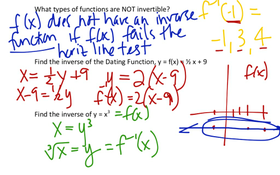 What types of functions are NOT invertible?
f(x) does not have an inverse
function if f(x) fails the
horiz line test
f⁻¹(-1) =
-1, 3, 4
Find the inverse of the Dating Function, y = f(x) = ½ x + 9
x = ½y + 9
x - 9 = ½y
y = 2(x - 9)
f⁻¹(x) = 2(x - 9)
f(x)
Find the inverse of y = x³ = f(x)
x = y³
∛x = y = f⁻¹(x)